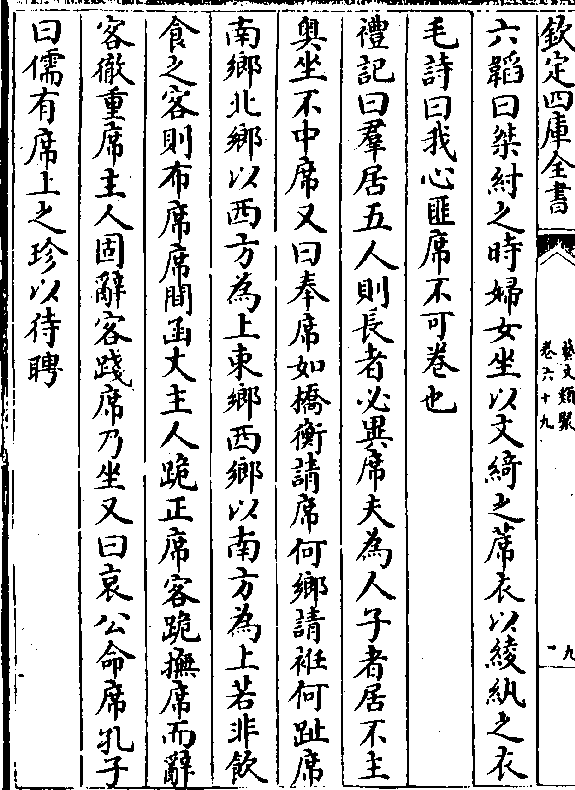 欽定四庫全書
藝文類聚
卷六十九
九
六韜曰桀紂之時婦女坐以文綺之席衣以綾紈之衣
毛詩曰我心匪席不可卷也
禮記曰羣居五人則長者必異席夫為人子者居不主
奥坐不中席又曰奉席如橋衡請席何鄉請袵何趾席
南鄉北鄉以西方為上東鄉西鄉以南方為上若非飲
食之客則布席席間函丈主人跪正席客跪撫席而辭
客徹重席主人固辭客踐席乃坐又曰哀公命席孔子
曰儒有席上之珍以待聘